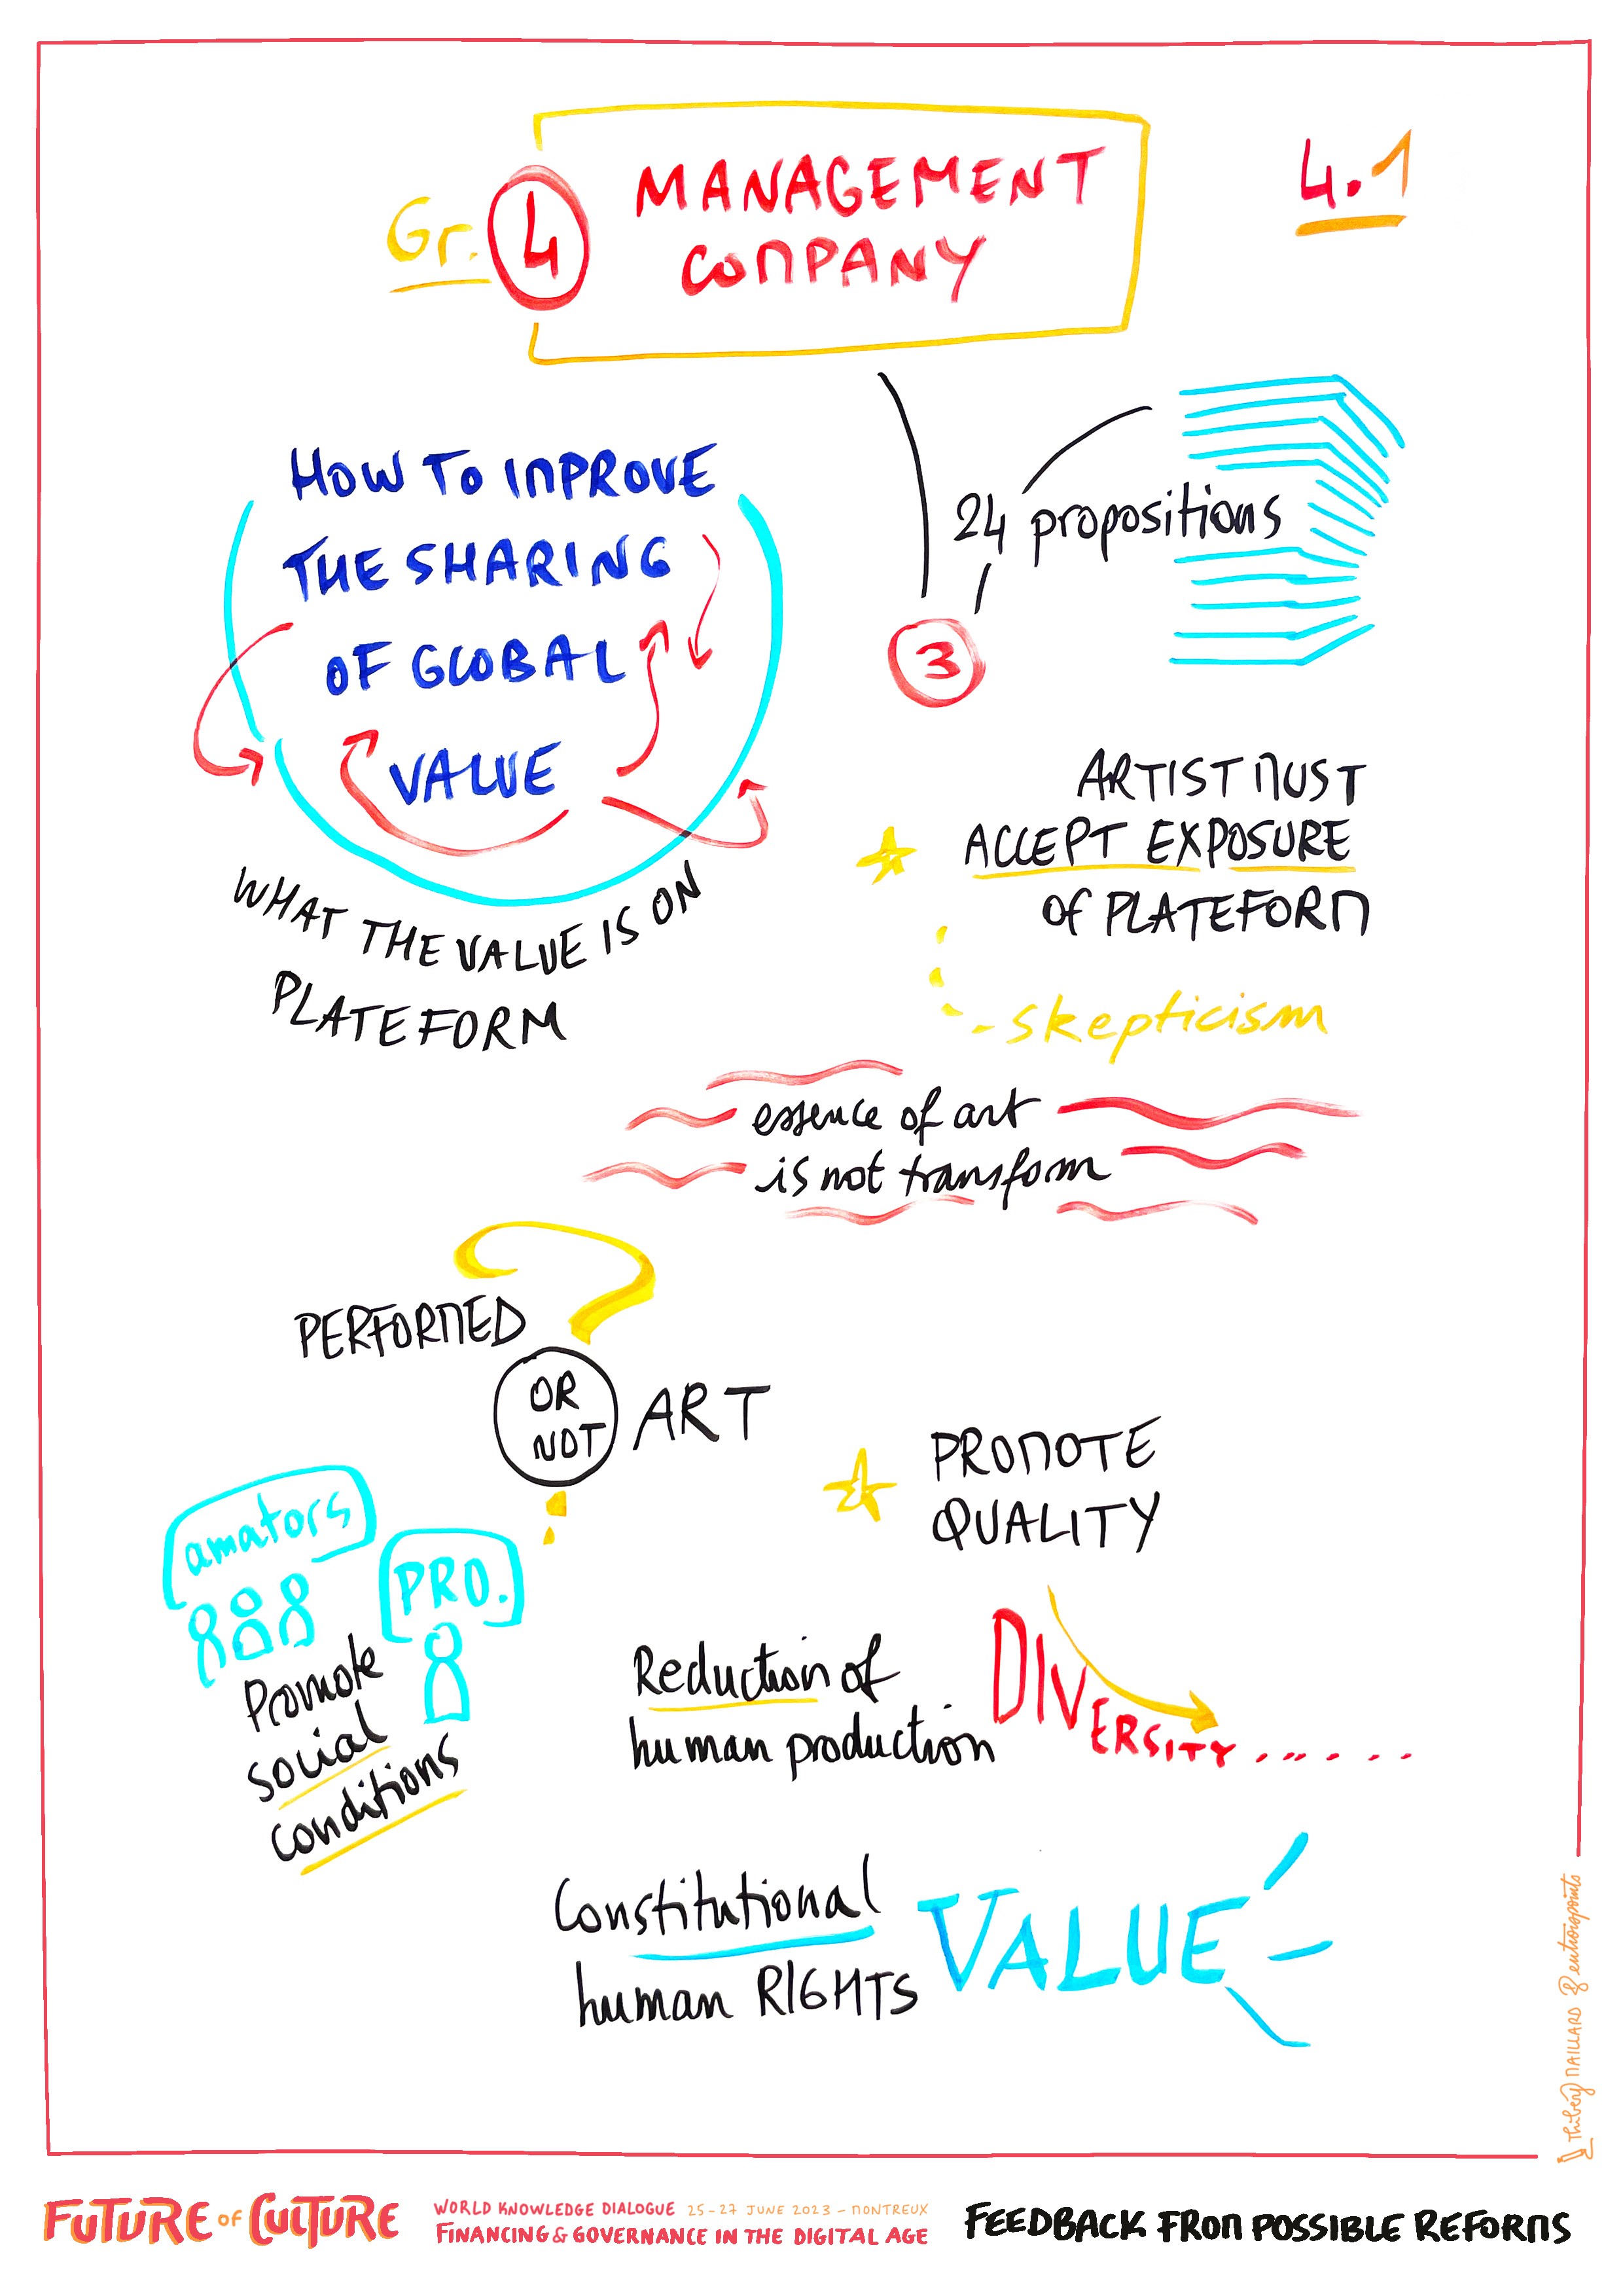 Gr. 4 MANAGEMENT
COMPANY
4.1
HOW TO IMPROVE
THE SHARING
OF GLOBAL
VALUE
WHAT THE VALUE IS ON
PLATEFORM
24 propositions
3
ARTIST MUST
ACCEPT EXPOSURE
OF PLATEFORM
skepticism
essence of art
is not transform
PERFORMED
OR
NOT
ART
amators
PRO.
Promote
social
conditions
PROMOTE
QUALITY
Reduction of
human production
DIVERSITY
Constitutional
human RIGHTS
VALUE
FUTURE OF CULTURE
WORLD KNOWLEDGE DIALOGUE 25-27 JUNE 2023 - MONTREUX
FINANCING & GOVERNANCE IN THE DIGITAL AGE
FEEDBACK FROM POSSIBLE REFORMS